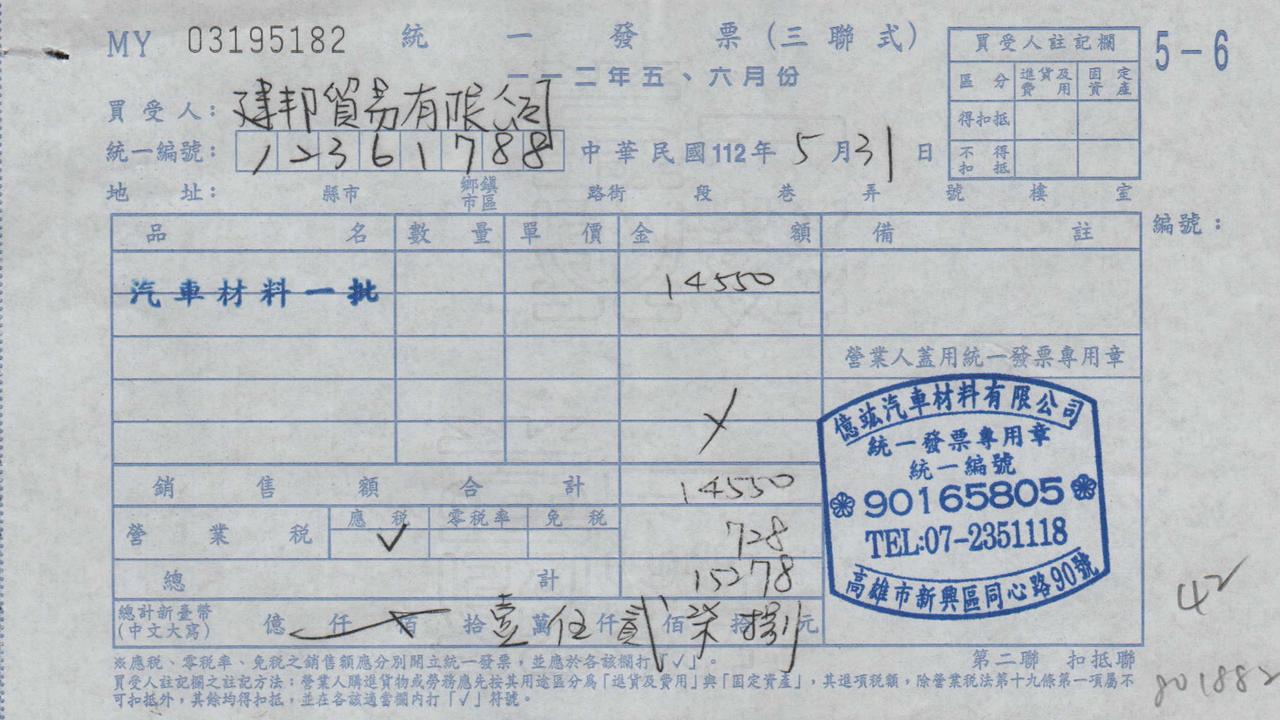 MY 03195182 統一發票(三聯式)
一一二年五、六月份
5-6
買受人註記欄
區分 進貨及費用 固定資產
得扣抵
不得扣抵
買受人: 建邦貿易有限公司
統一編號: 12361788 中華民國112年5月31日
地址: 縣市 鄉鎮市區 路街 段 巷 弄 號 樓 室
編號:
品名 數量 單價 金額 備註
汽車材料一批 14550
營業人蓋用統一發票專用章
銷售額合計 14550
營業稅 應稅 ✓ 零稅率 免稅 728
總計 15278
總計新臺幣(中文大寫) 億 仟 佰 拾 壹萬 伍仟 貳佰 柒拾 捌元
億竑汽車材料有限公司
統一發票專用章
統一編號
90165805
TEL:07-2351118
高雄市新興區同心路90號
42
※應稅、零稅率、免稅之銷售額應分別開立統一發票,並應於各該欄打「✓」。
第二聯 扣抵聯
買受人註記欄之註記方法:營業人購進貨物或勞務應先按其用途區分為「進貨及費用」與「固定資產」,其進項稅額,除營業稅法第十九條第一項屬不
可扣抵外,其餘均得扣抵,並在各該適當欄內打「✓」符號。
801882